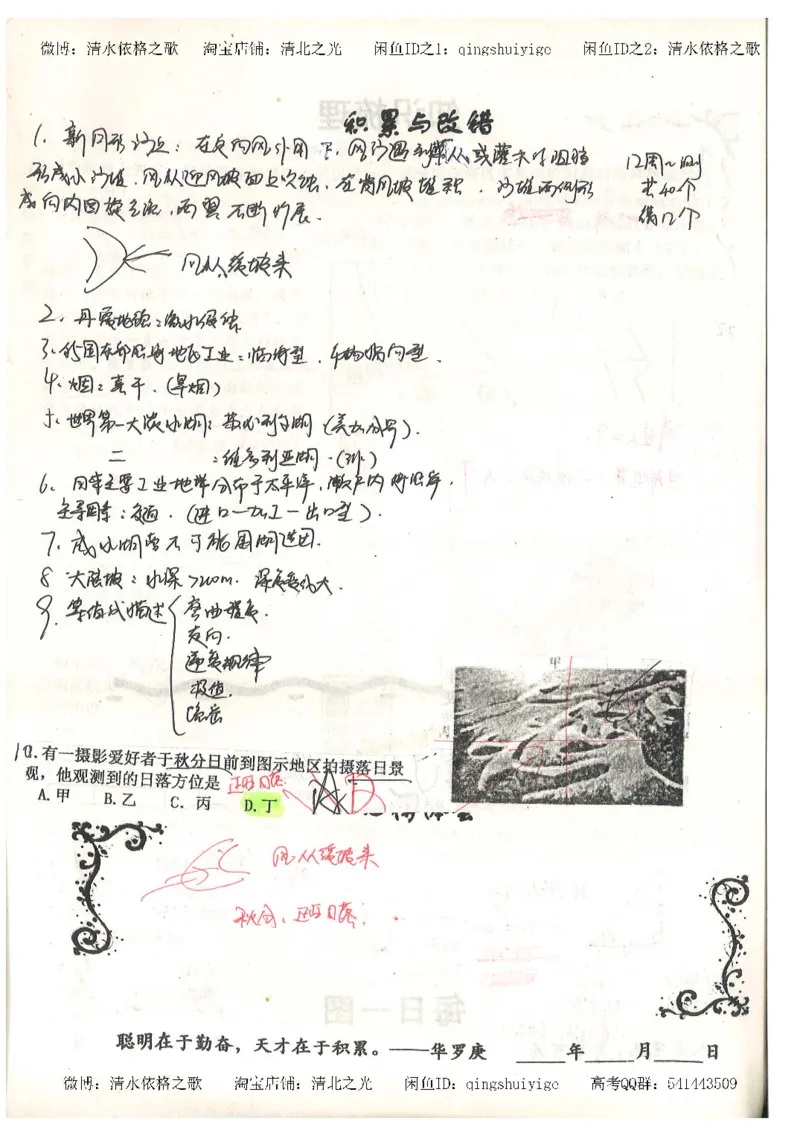 微博：清水依格之歌 淘宝店铺：清北之光 闲鱼ID之1：qingshuiyige 闲鱼ID之2：清水依格之歌
积累与改错
1. 新月形沙丘：在定向风作用下，风沙遇到草丛或灌木时阻挡
形成小沙堆，风从迎风坡面上吹蚀，在背风坡堆积，沙堆两侧形
成向内回旋气流，两翼不断扩展．
12周～测
共40个
错12个
风从缓坡来
2、丹霞地貌：流水侵蚀
3、
4、烟：烹干．(旱烟)
5、世界第一大淡水湖：苏必利尔湖（美加分界）．
二 ：维多利亚湖．（非）
6、日本主要工业地带分布于太平洋，濑户内海沿岸．
主导因素：交通．（进口—加工—出口型）．
7、咸水湖
8 大陆坡：水深>200m．深度变化大．
9、等值线描述
弯曲程度．
走向．
递变规律
极值．
甲
10.有一摄影爱好者于秋分日前到图示地区拍摄落日景
观，他观测到的日落方位是 正西日落
A.甲 B.乙 C.丙 D.丁
B
风从缓坡来
秋分，正西日落．
聪明在于勤奋，天才在于积累。——华罗庚 年 月 日
微博：清水依格之歌 淘宝店铺：清北之光 闲鱼ID：qingshuiyige 高考QQ群：541443509